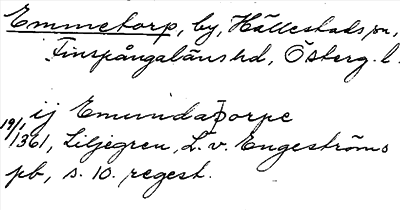 Emmetorp, by, Hällestads sn,
Finspångalänshd, Österg. l.
ij Emundaþorpe
19/1 1361, Liljegren, L. v. Engeströms
pb, s. 10. regest.